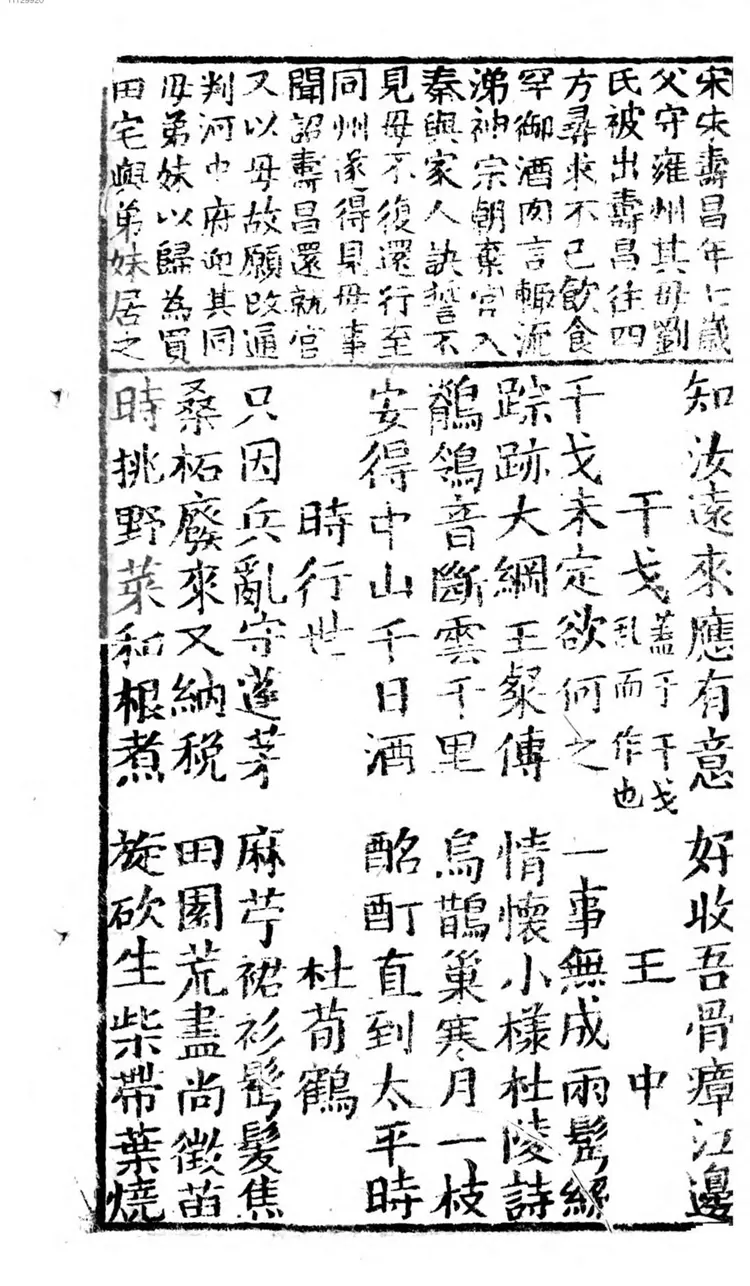 宋朱壽昌年七歲
父守雍州其母劉
氏被出壽昌往四
方尋求不已飲食
罕御酒肉言輒流
涕神宗朝棄官入
秦與家人訣誓不
見母不復還行至
同州遂得見母事
聞詔壽昌還就官
又以母故願改通
判河中府迎其同
母弟妹以歸為買
田宅與弟妹居之
知汝遠來應有意 好收吾骨瘴江邊
干戈 蓋于干戈乱而作也 王中
干戈未定欲何之 一事無成兩鬂絲
踪跡大綱王粲傳 情懷小樣杜陵詩
鶺鴒音斷雲千里 烏鵲巢寒月一枝
安得中山千日酒 酩酊直到太平時
時行世 杜荀鶴
只因兵亂守蓬茅 麻苧裙衫鬂髮焦
桑柘廢來又納稅 田園荒盡尚徵苗
時挑野菜和根煮 旋砍生柴帶葉燒
11129920